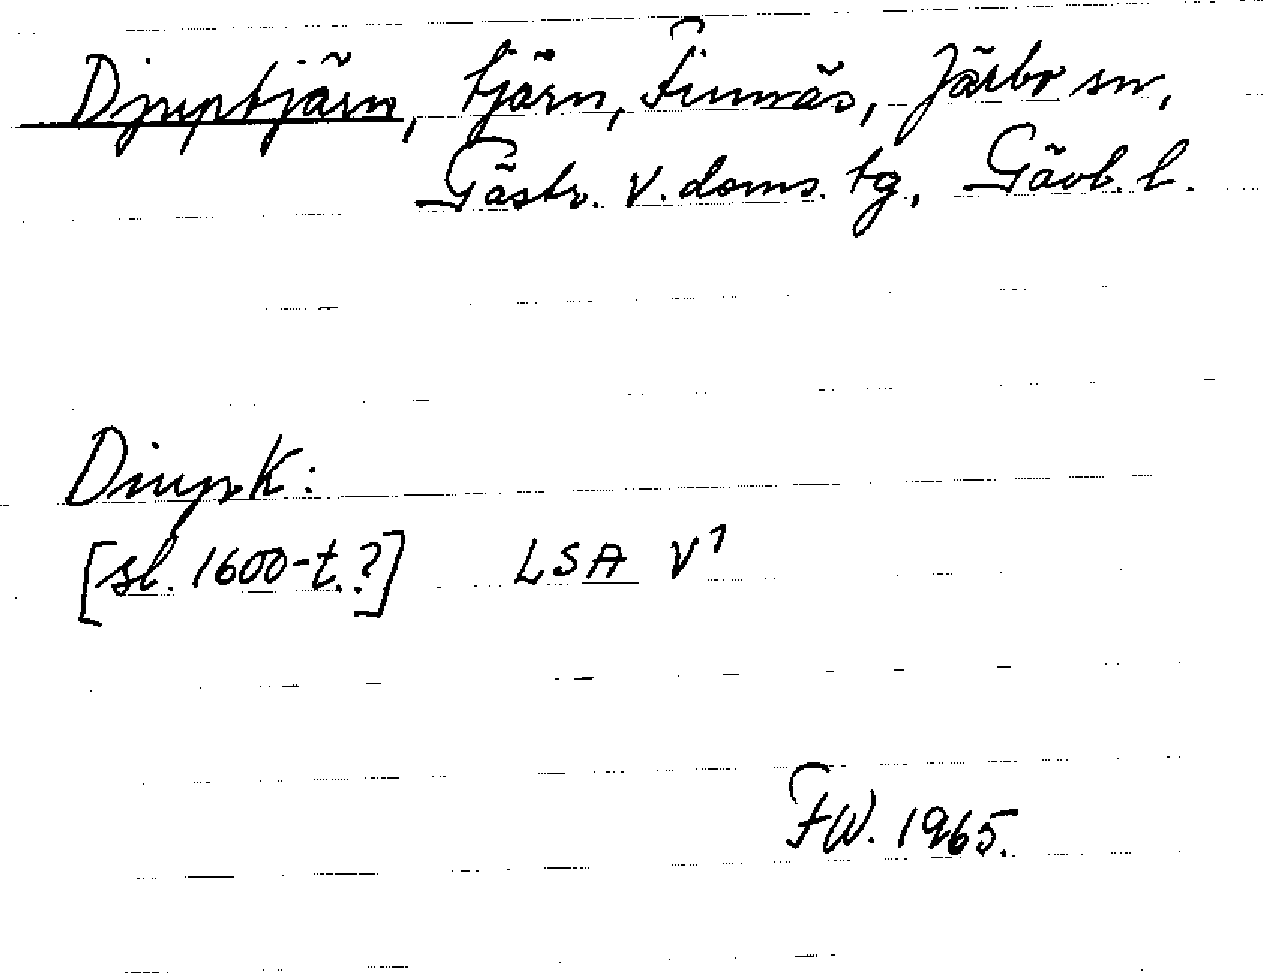 Djuptjärn, tjärn, Finnäs, Järbo sn,
Gästr. V. doms. tg, Gävl. l.
Diupk:
[sl. 1600-t.?] LSA V1
FW. 1965.